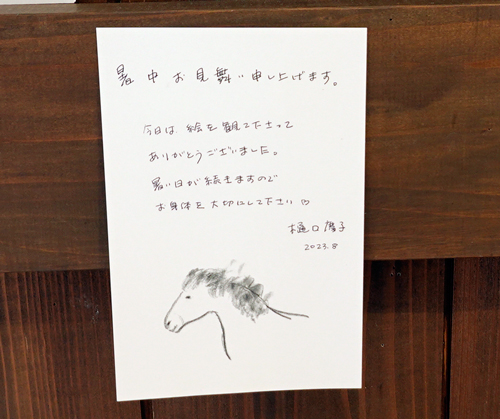 暑中お見舞い申し上げます。
今日は、絵を観て下さって
ありがとうございました。
暑い日が続きますので
お身体を大切にして下さい
樋口
2023.8